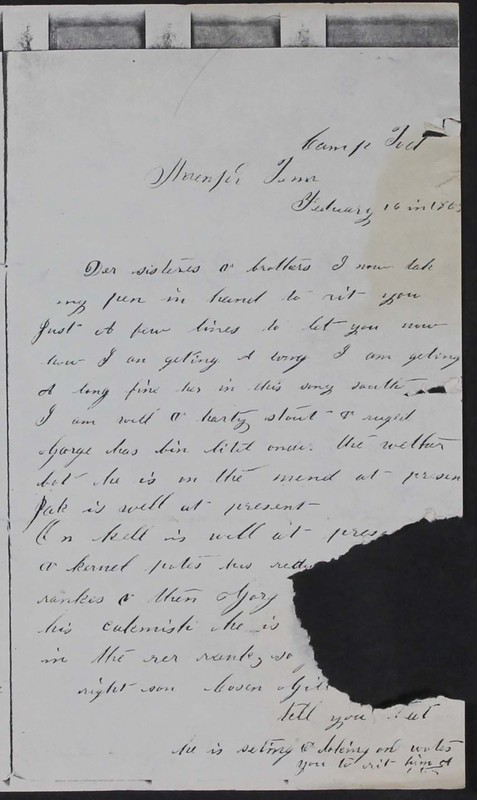 Camp
Tenn
Feduary 16 in 186
Der sisteres & brothers I now tak
my pen in hand to rit you
Just A few lines to let you now
how I an geting A long I am geting
A long fine her in this sony south
I am well & harty stout & ruged
Gorge has bin litel onde. the wether
but he is on the mend at presen
Jak is well at present
is well at prese
& kernel potes his
rankes & then Gorg
his he is
in the rer rank, so
right son Cosen
tell you that
he is seting & loking on wotes
you to rit him A